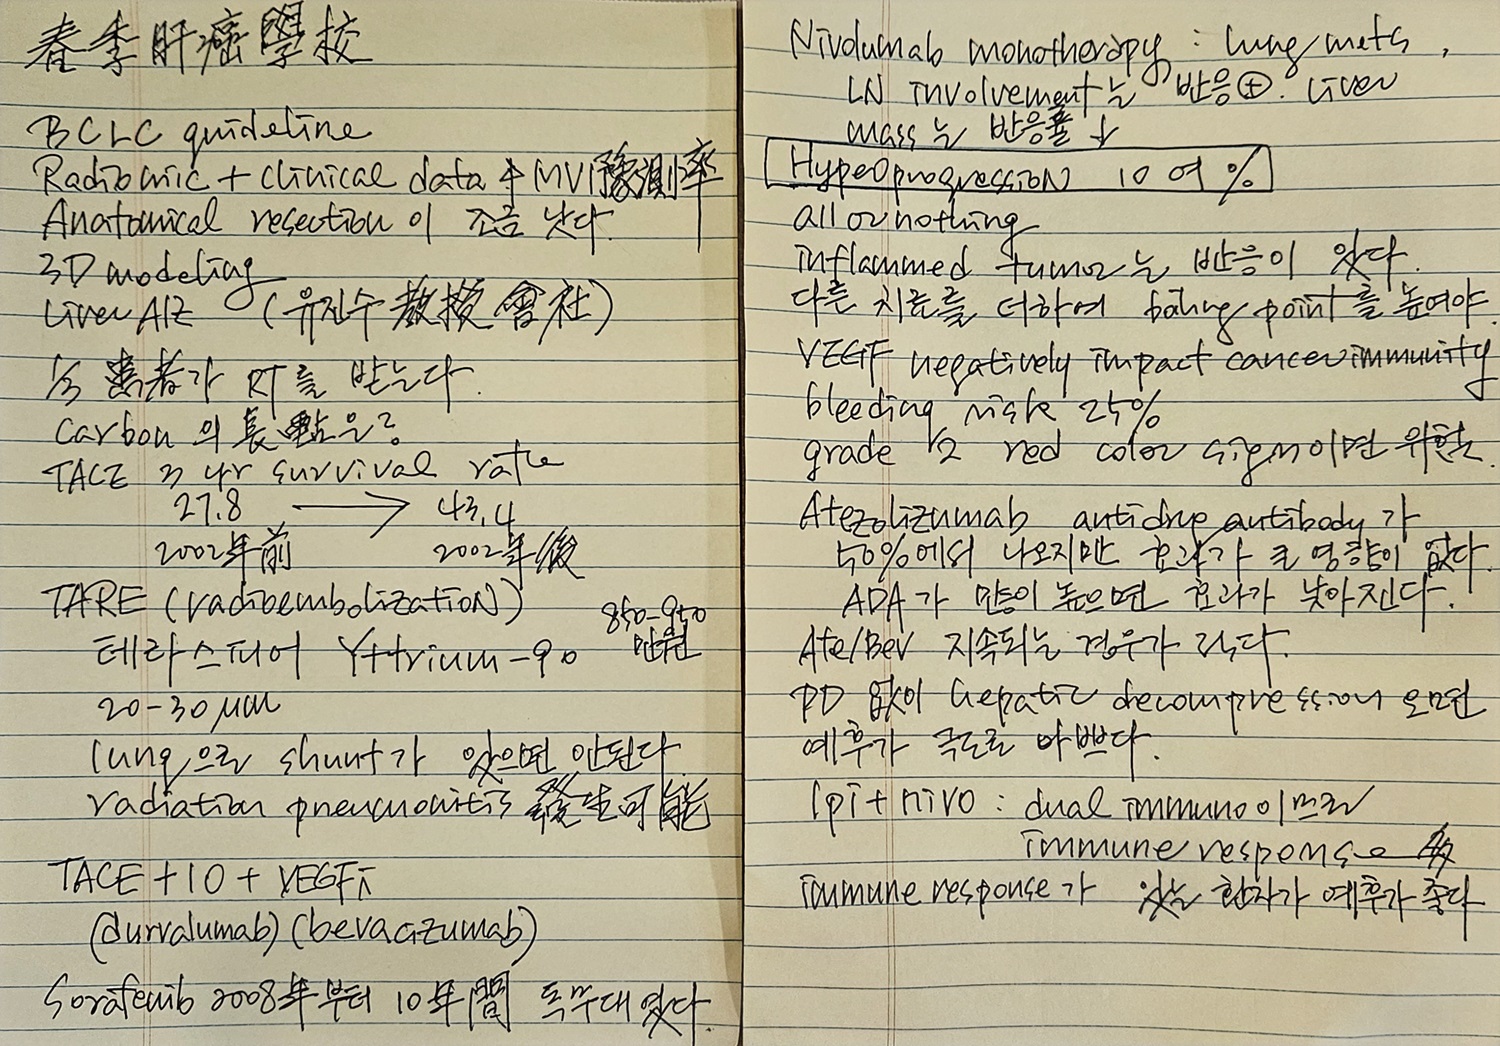 春季肝癌學校
BCLC guideline
Radiomic + clinical data MVI豫測率
Anatomical resection이 조금 낫다.
3D modeling
Liver AIZ (유진수 敎授 會社)
1/3 患者가 RT를 받는다.
Carbon의 長點은?
TACE 3 yr survival rate
27.8 → 43.4
2002年前 2002年後
TARE (radioembolization)
850-950
만원
테라스피어 Yttrium-90
20-30μm
lung으로 shunt가 있으면 안된다.
radiation pneumonitis 發生可能
TACE + IO + VEGFi
(durvalumab) (bevacizumab)
Sorafenib 2008年부터 10年間 독무대였다.
Nivolumab monotherapy : lung mets,
LN involvement는 반응⊕. Liver
mass는 반응률↓
Hyperprogression 10여%
all or nothing
inflammed tumor는 반응이 있다.
다른 치료를 더하여 point를 높여야.
VEGF negatively impact cancer immunity
bleeding risk 25%
grade 1/2 red color sign이면 위험.
Atezolizumab antidrug antibody가
50%에서 나오지만 효과가 큰 영향이 없다.
ADA가 많이 높으면 효과가 낮아진다.
Ate/Bev 지속되는 경우가 라다.
PD 없이 hepatic decompression 오면
예후가 극도로 나쁘다.
Ipi + nivo : dual immuno이므로
immune response 多
immune response가 있는 환자가 예후가 좋다